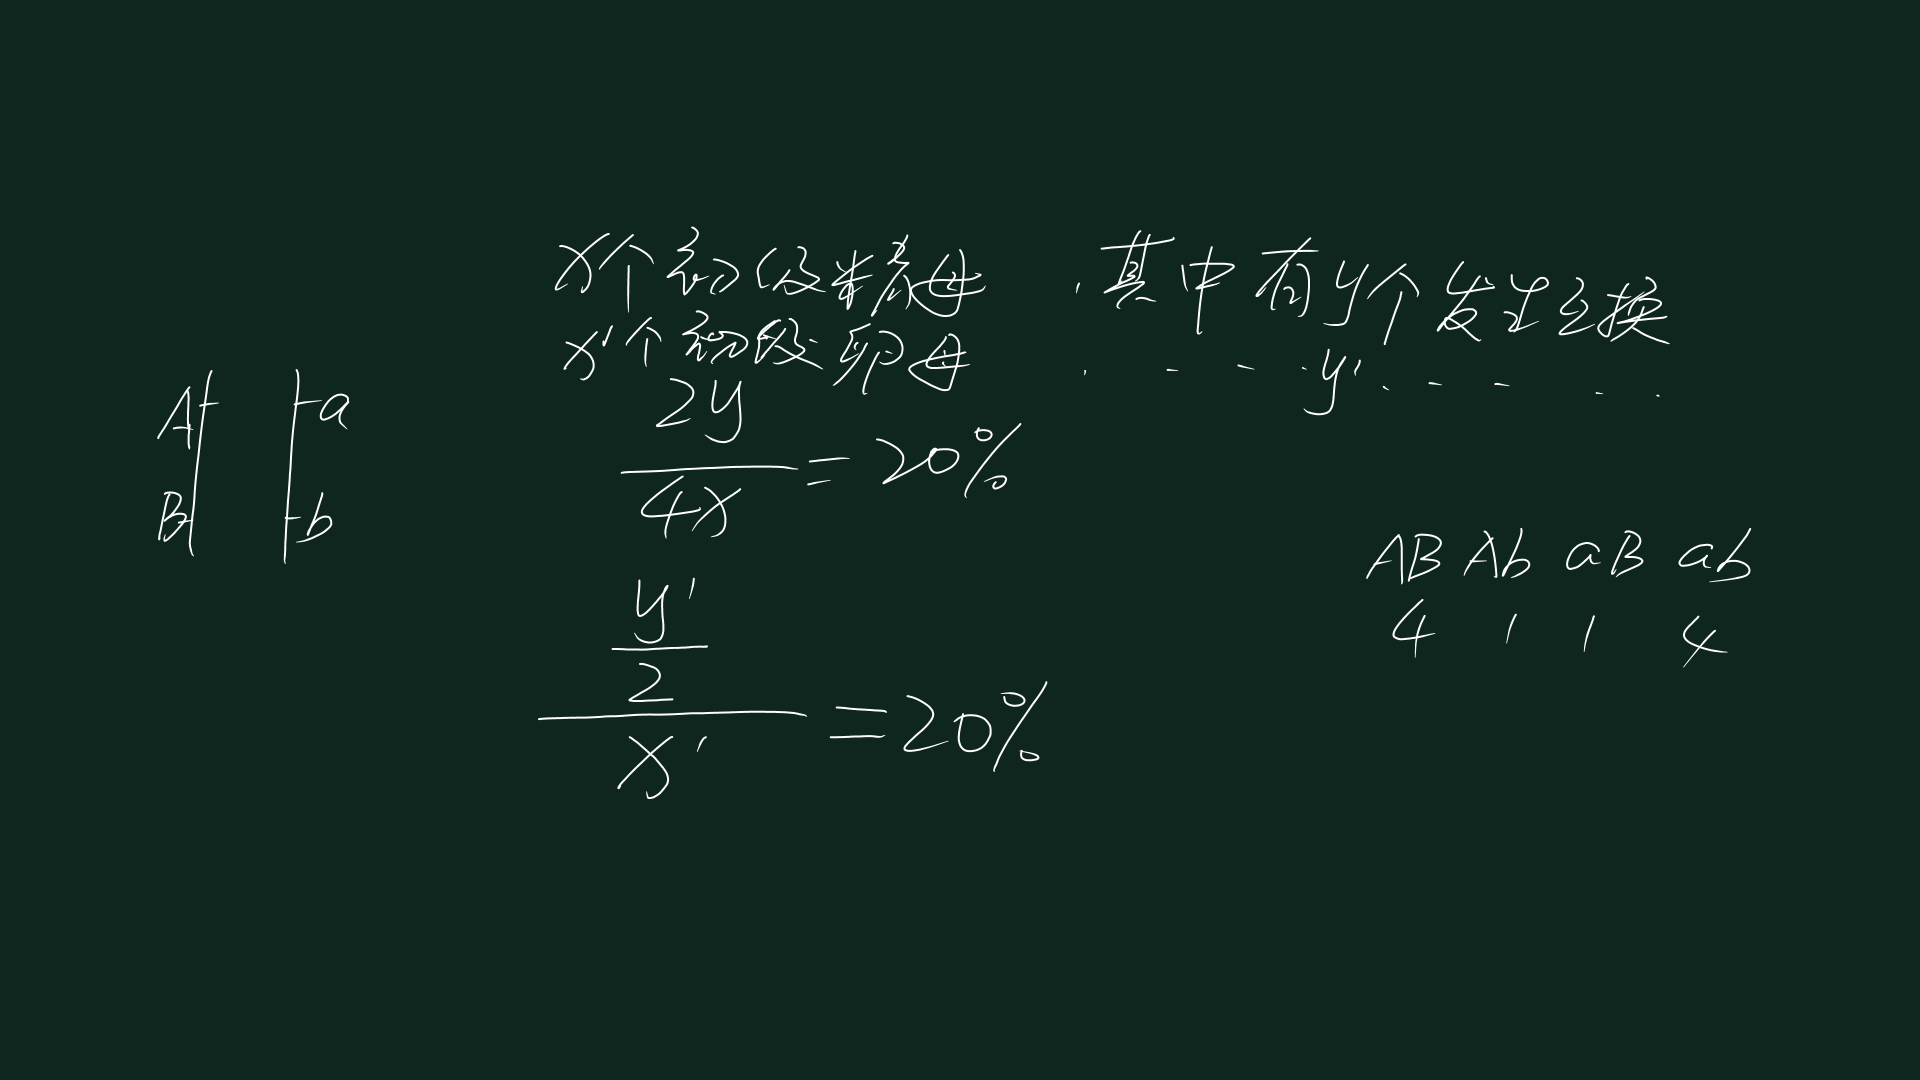 x个初级精母 ,其中有y个发生互换
x'个初级卵母 , - - · y' · - - · ·
2y
—— = 20%
4x
A a
B b
y'
—
2
—— = 20%
x'
AB Ab aB ab
4 1 1 4